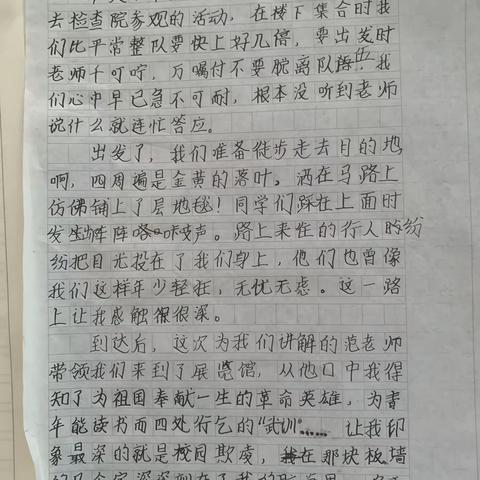 去检查院参观的活动，在楼下集合时我
们比平常整队要快上好几倍，要出发时
老师千叮咛，万嘱付不要脱离队伍，我
们心中早已急不可耐，根本没听到老师
说什么就连忙答应。
出发了，我们准备徒步走去目的地
啊，四周遍是金黄的落叶。洒在马路上
仿佛铺上了层地毯！同学们踩在上面时
发出阵阵咯吱声。路上来往的行人纷
纷把目光投在了我们身上，他们也曾像
我们这样年少轻狂，无忧无虑。这一路
上让我感触很深。
到达后，这次为我们讲解的范老师
带领我们来到了展览馆，从他口中我得
知了为祖国奉献一生的革命英雄，为青
年能读书而四处行乞的“武训”……让我印
象最深的就是校园欺凌，在那块板墙